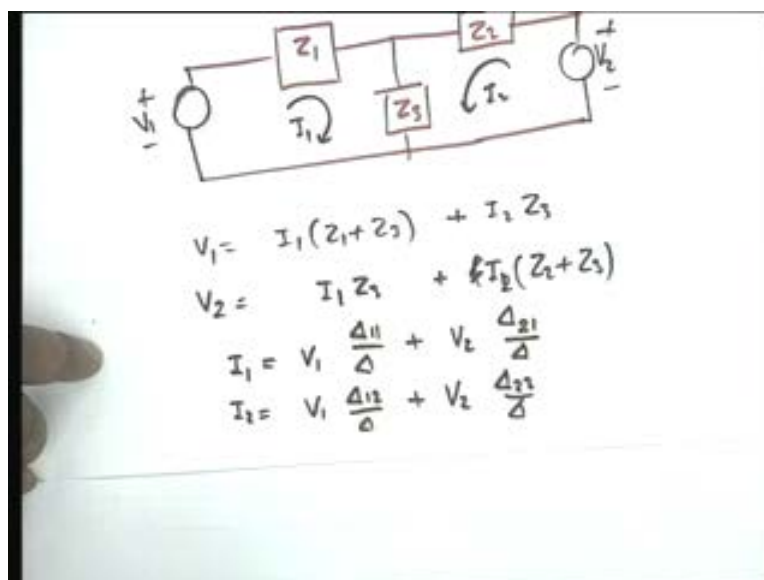 Z1 Z2
+ V1 - I1 Z3 I2 + V2 -
V1 = I1(Z1+Z3) + I2 Z3
V2 = I1 Z3 + I2(Z2+Z3)
I1 = V1 Δ11/Δ + V2 Δ21/Δ
I2 = V1 Δ12/Δ + V2 Δ22/Δ